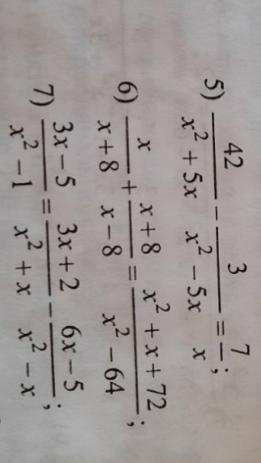 5) 42/(x² + 5x) − 3/(x² − 5x) = 7/x;
6) x/(x + 8) + (x + 8)/(x − 8) = (x² + x + 72)/(x² − 64);
7) (3x − 5)/(x² − 1) = (3x + 2)/(x² + x) − (6x − 5)/(x² − x);